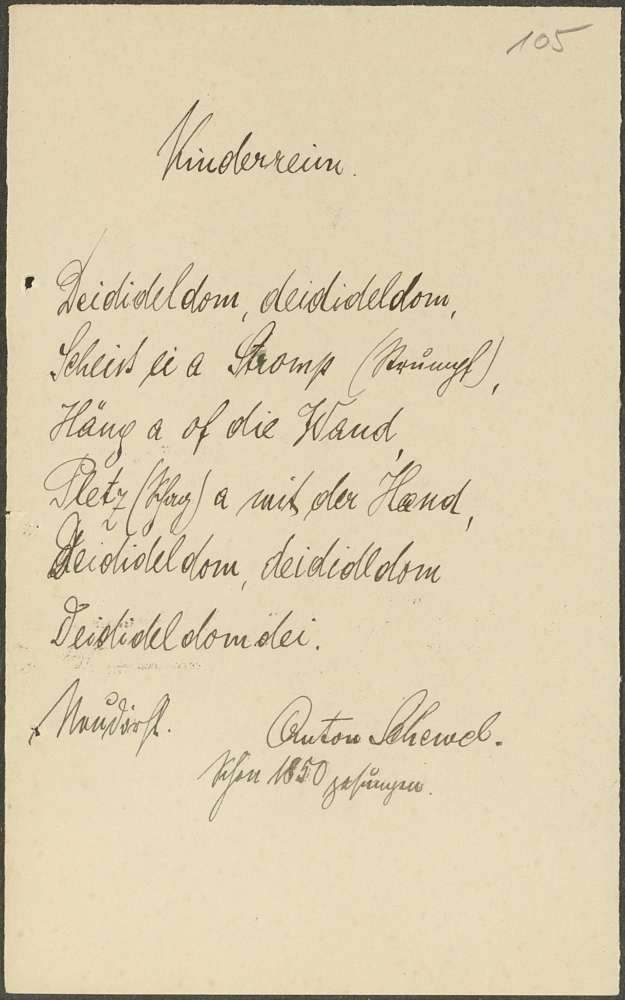 105
Kinderreim.
Deidideldom, deidideldom,
Scheist ei a Stromp (Strumpf),
Häng a of die Wand,
Pletz (Schlag) a mit der Hand,
Deidideldom, deidideldom
Deidideldomdei.
Neudörfl. Anton Schewel.
Schon 1850 gesungen.